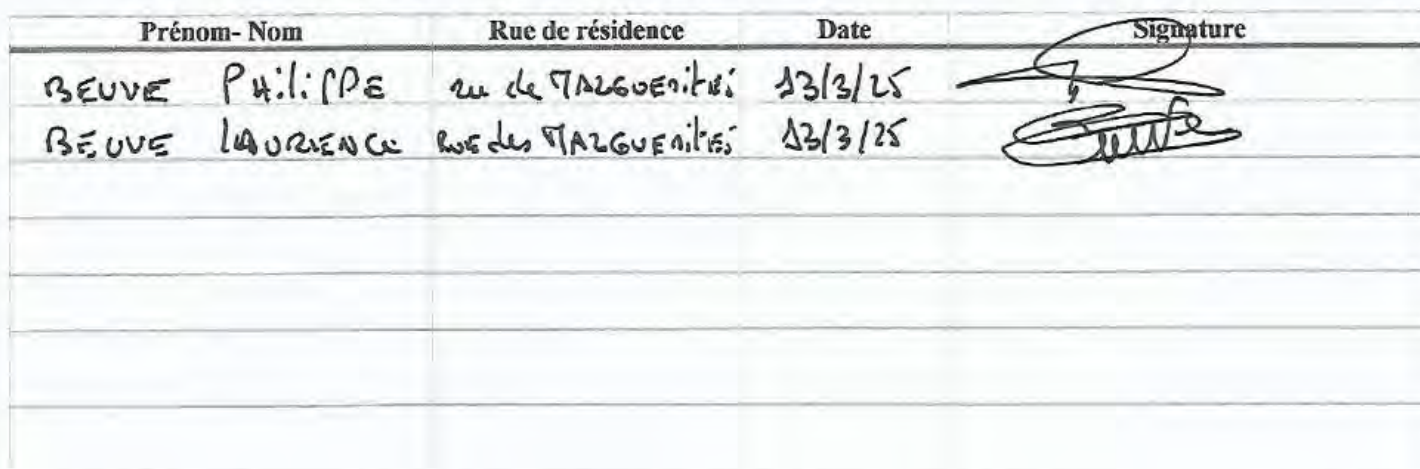 Prénom- Nom Rue de résidence Date Signature
BEUVE PHiliPPE rue de MARGUERitEs 13/3/25
BEUVE LAURENCE RuE des MARGUERitEs 13/3/25